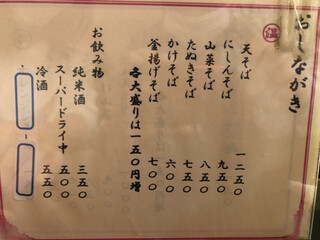 おしながき
温
天そば 一二五〇
にしんそば 九五〇
山菜そば 八五〇
たぬきそば 七五〇
かけそば 六〇〇
釜揚げそば 七〇〇
各大盛りは一五〇円増
お飲み物
純米酒 三五〇
スーパードライ中 五〇〇
冷酒 五五〇